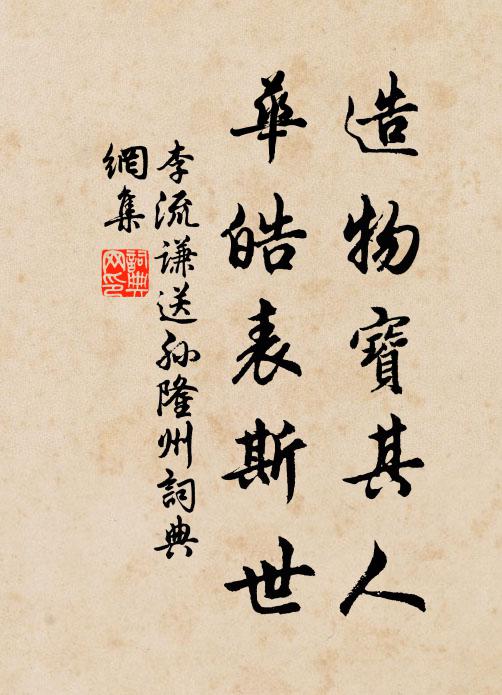 造物寶其人
華皓表斯世
李流谦送孙隆州詞典
網集
詞典網印